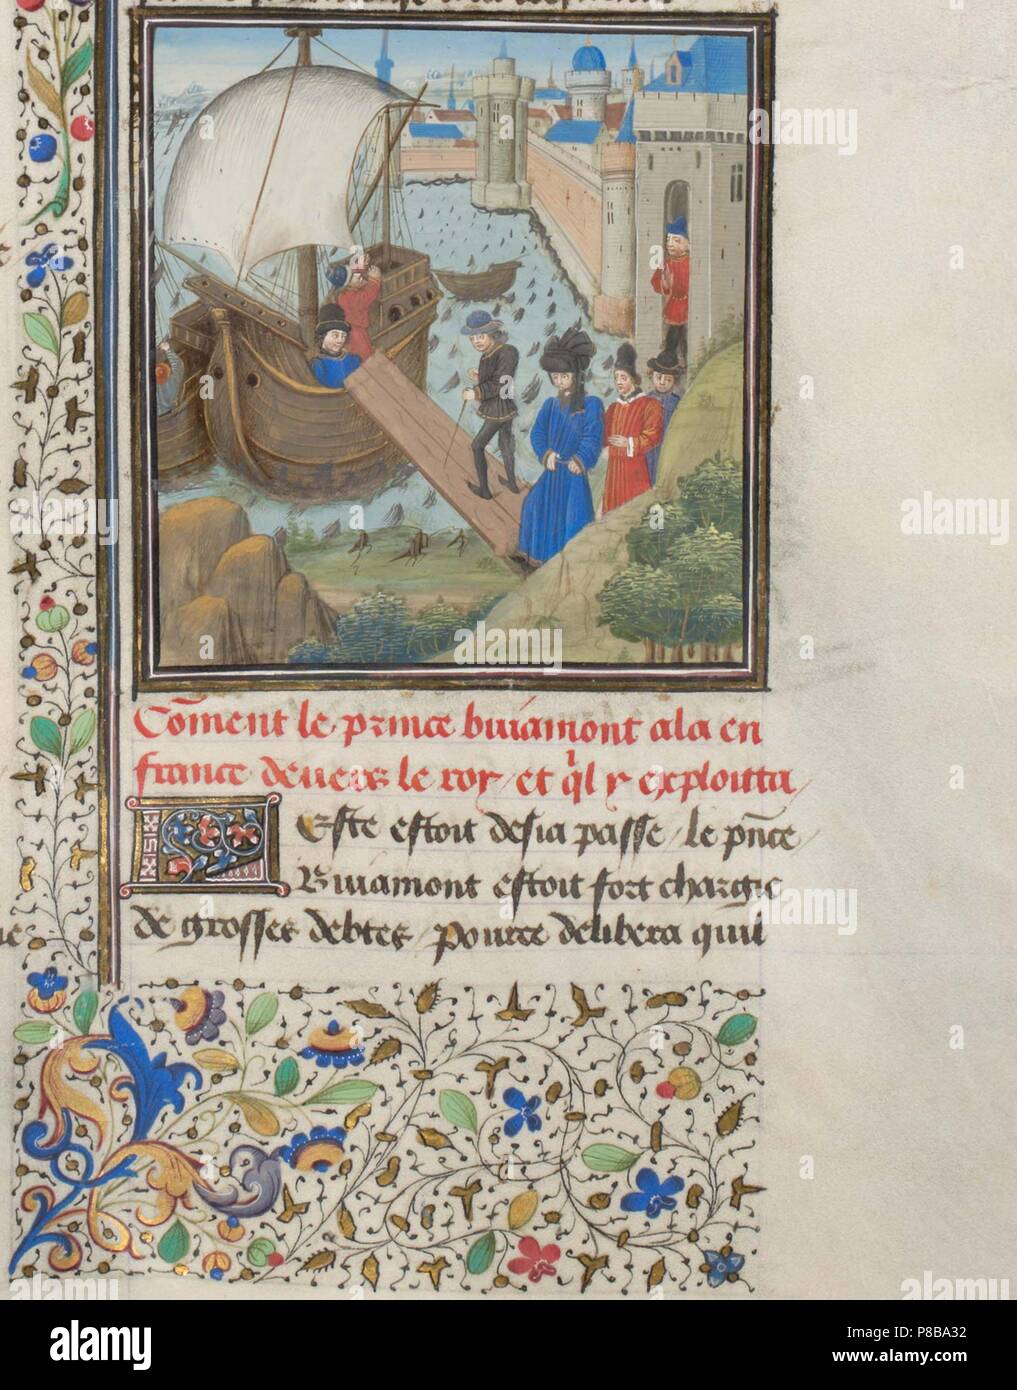 Com̄ent le prince buiamont ala en
france deuers le roy / et ql̄ y exploitta /
Este estoit desia passe / le pn̄ce /
Buiamont estoit fort chargie
de grosses debtes / pource delibera quil
alamy
alamy
alamy
alamy
Image ID: P8BA32
www.alamy.com